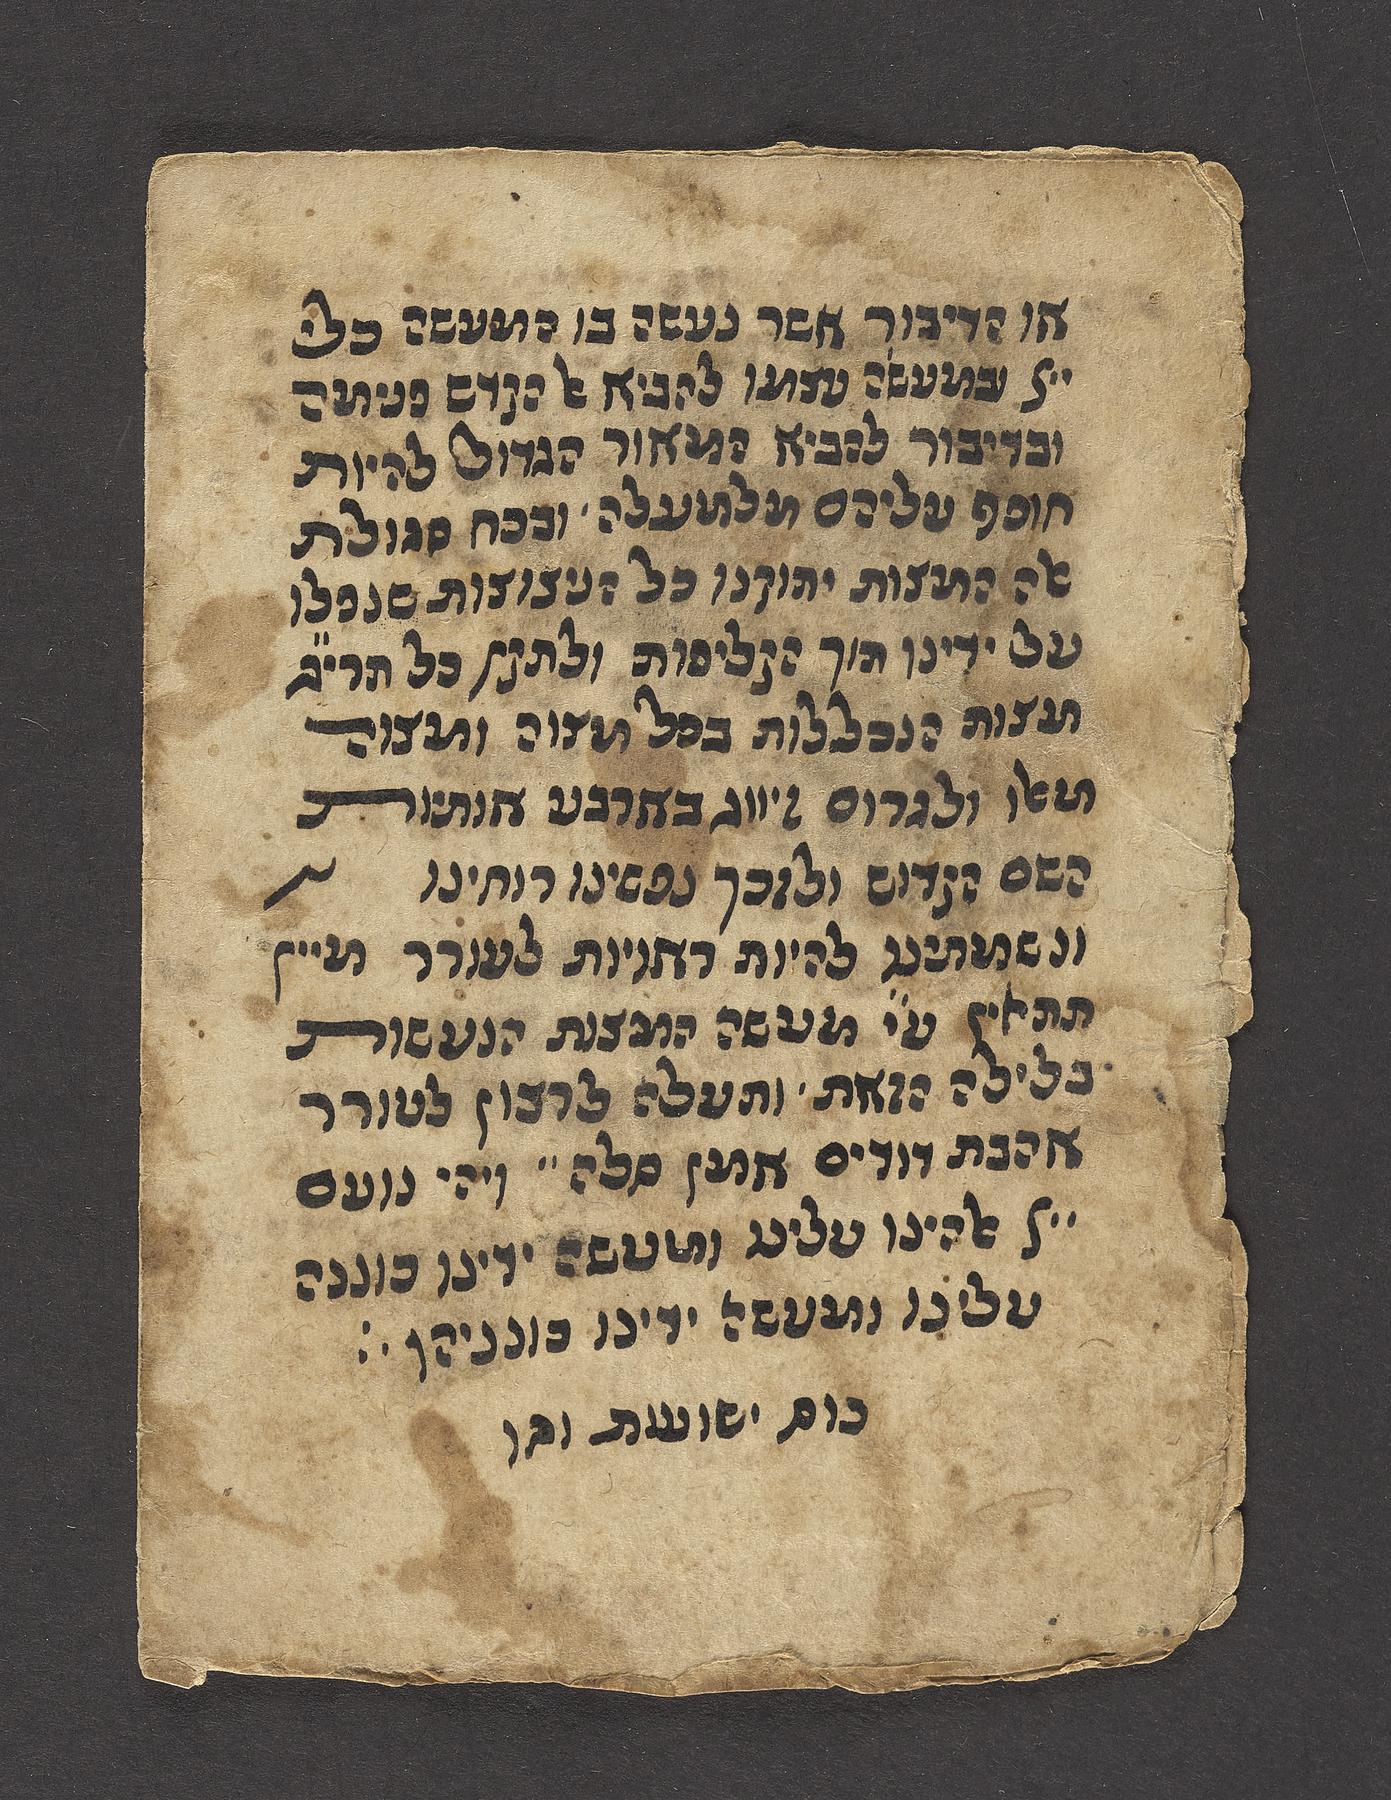 או הדיבור אשר נעשה בו המעשה כלי
ייל שמעשה עצמו להביא א׳ הקדש פנימה
ובדיבור להביא המאור הגדול להיות
חופף עליהם מלמעלה׳ ובכח סגולת
אלה המצות יתוקנו כל הניצוצות שנפלו
על ידינו תוך הקליפות ולתקן כל תרי״ג
מצות הנכללות בכל מצוה ומצוה
מאלו ולגרום זיווג בארבע אותיות
השם הקדוש ולזכך נפשינו רוחינו
ונשמתינו להיות ראויות לעורר מיין
תתאין ע״י מעשה המצות הנעשות
בלילה הזאת׳ ותעלה לרצון לעורר
אהבת דודים אמן סלה״ ויהי נועם
ייל אלהינו עלינו ומעשה ידינו כוננה
עלינו ומעשה ידינו כונניהו
כוס ישועות וכו